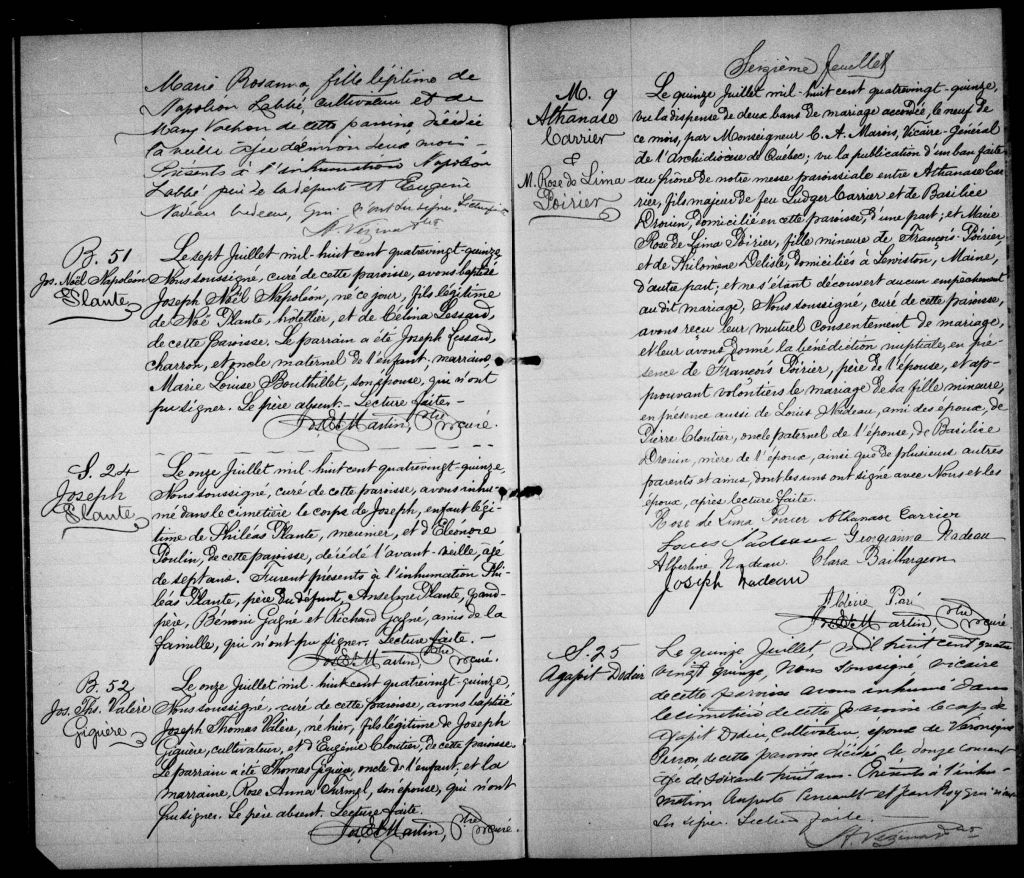 Marie Rosanna, fille légitime de
Napoléon Labbé, cultivateur et de
Mary Vachon de cette paroisse, décédée
la veille agée d'environ deux mois.
Présents à l'inhumation Napoléon
Labbé père de la défunte et Eugène
Nadeau bedeau, qui n'ont su signer. Lecture faite
A. Vézina Ptre
B. 51
Jos. Noël Napoléon
Plante
Le sept Juillet mil-huit cent quatrevingt-quinze,
Nous soussigné, curé de cette paroisse, avons baptisé
Joseph Noël Napoléon, né ce jour, fils légitime
de Noé Plante, hôtellier, et de Célina Lessard,
de cette paroisse. Le parrain a été Joseph Lessard,
charron, et oncle maternel de l'enfant; marraine,
Marie Louise Bouthillet, son épouse, qui n'ont
pu signer. Le père absent. - Lecture faite. -
Jos. Ed. Martin, Ptre curé.
S. 24
Joseph
Plante
Le onze Juillet mil-huit cent quatrevingt-quinze,
Nous soussigné, curé de cette paroisse, avons inhu-
mé dans le cimetière le corps de Joseph, enfant légi-
time de Philéas Plante, meunier, et d'Eléonore
Poulin, de cette paroisse, décédé l'avant-veille, agé
de sept ans. Furent présents à l'inhumation Phi-
léas Plante, père du défunt, Anselme Plante, grand-
père, Bénoni Gagné et Richard Gagné, amis de la
famille, qui n'ont pu signer. Lecture faite. -
Jos. Ed. Martin, Ptre curé.
B. 52
Jos. Ths. Valère
Giguère
Le onze Juillet mil-huit cent quatrevingt-quinze,
Nous soussigné, curé de cette paroisse, avons baptisé
Joseph Thomas Valère, né hier, fils légitime de Joseph
Giguère, cultivateur, et d'Eugénie Cloutier, de cette paroisse.
Le parrain a été Thomas Giguère, oncle de l'enfant, et la
marraine, Rose Anna Turmel, son épouse, qui n'ont
pu signer. Le père absent. Lecture faite.
Jos. Ed. Martin, Ptre curé.
Seizième feuillet
M. 9
Athanase
Carrier
&
M. Rose de Lima
Poirier
Le quinze Juillet mil-huit cent quatrevingt-quinze,
vu la dispense de deux bans de mariage accordée, le neuf de
ce mois, par Monseigneur C. A. Marois, Vicaire-Général
de l'archidiocèse de Québec; vu la publication d'un ban faite
au prône de notre messe paroissiale entre Athanase Car-
rier, fils majeur de feu Ludger Carrier et de Basilice
Drouin, domicilié en cette paroisse, d'une part; et Marie
Rose de Lima Poirier, fille mineure de François Poirier,
et de Philomène Delisle, domiciliés à Lewiston, Maine,
d'autre part, et ne s'étant découvert aucun empêchement
au dit mariage, Nous soussigné, curé de cette paroisse,
avons reçu leur mutuel consentement de mariage,
et leur avons donné la bénédiction nuptiale, en pré-
sence de François Poirier, père de l'épouse, et ap-
prouvant volontiers le mariage de sa fille mineure,
en présence aussi de Louis Nadeau, ami des époux, de
Pierre Cloutier, oncle paternel de l'épouse, de Basilice
Drouin, mère de l'époux, ainsi que de plusieurs autres
parents et amis, dont les uns ont signé avec Nous et les
époux, après lecture faite.
Rose de Lima Poirier Athanase Carrier
Louis Nadeau Georgianna Nadeau
Albertine Nadeau. Clara Baillargeon
Joseph Nadeau
Aldérie Paré
Jos. Ed. Martin, Ptre curé.
S. 25
Agapit Dodier
Le quinze Juillet, mil huit cent quatre
vingt quinze, nous soussigné vicaire
de cette paroisse avons inhumé dans
le cimetière de cette paroisse le corps de
Agapit Dodier, Cultivateur, époux de Véronique
Perron, de cette paroisse décédé, le douze courant
agé de soixante huit ans. Présents à l'inhu-
mation Auguste et Jean Roy qui n'ont
su signer. Lecture faite.
A. Vézina Ptre